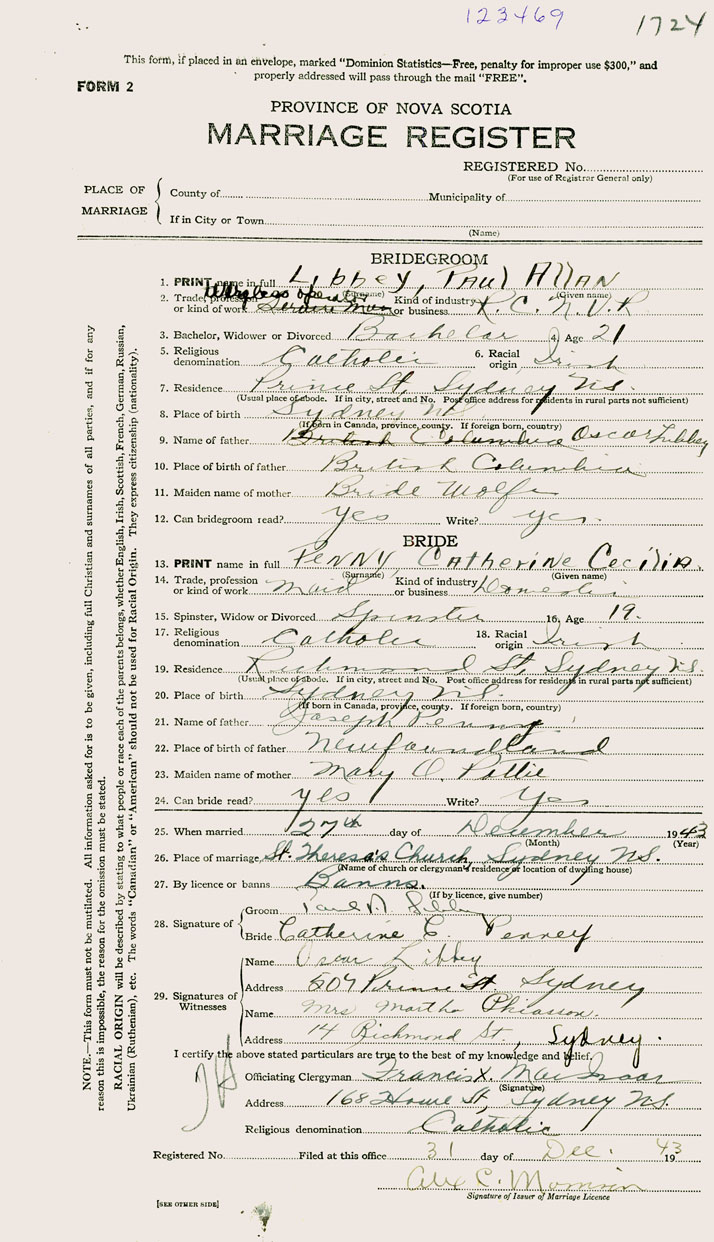 123469 1724
This form, if placed in an envelope, marked "Dominion Statistics—Free, penalty for improper use $300," and
properly addressed will pass through the mail "FREE".
FORM 2
PROVINCE OF NOVA SCOTIA
MARRIAGE REGISTER
REGISTERED No.
(For use of Registrar General only)
PLACE OF MARRIAGE
County of Municipality of
If in City or Town
(Name)
BRIDEGROOM
1. PRINT name in full Libbey, Paul Allan
(Surname) (Given name)
2. Trade, profession or kind of work Wireless operator Service Man Kind of industry or business R.C.N.V.R
3. Bachelor, Widower or Divorced Bachelor 4. Age 21
5. Religious denomination Catholic 6. Racial origin Irish
7. Residence Prince St. Sydney NS.
(Usual place of abode. If in city, street and No. Post office address for residents in rural parts not sufficient)
8. Place of birth Sydney NS
(If born in Canada, province, county. If foreign born, country)
9. Name of father British Columbia Oscar Libbey
10. Place of birth of father British Columbia
11. Maiden name of mother Bride Wolfe
12. Can bridegroom read? yes Write? yes.
BRIDE
13. PRINT name in full PENNY Catherine Cecilia.
(Surname) (Given name)
14. Trade, profession or kind of work maid Kind of industry or business Domestic
15. Spinster, Widow or Divorced Spinster 16. Age 19.
17. Religious denomination Catholic 18. Racial origin Irish
19. Residence Richmond St, Sydney NS.
(Usual place of abode. If in city, street and No. Post office address for residents in rural parts not sufficient)
20. Place of birth Sydney NS.
(If born in Canada, province, county. If foreign born, country)
21. Name of father Joseph Penny
22. Place of birth of father Newfoundland
23. Maiden name of mother Mary O.
24. Can bride read? yes Write? Yes
25. When married 27th day of December 1943
(Month) (Year)
26. Place of marriage St. Theresa's Church, Sydney NS.
(Name of church or clergyman's residence or location of dwelling house)
27. By licence or banns Banns.
(If by licence, give number)
28. Signature of
Groom Paul A. Libbey
Bride Catherine C. Penney
29. Signatures of Witnesses
Name Oscar Libbey
Address 507 Prince St Sydney
Name Mrs Martha
Address 14 Richmond St., Sydney.
I certify the above stated particulars are true to the best of my knowledge and belief.
Officiating Clergyman Francis X. MacIsaac
(Signature)
Address 168 Howe St, Sydney NS.
Religious denomination Catholic
Registered No. Filed at this office 31 day of Dec. 1943
Alex C. Morrison
Signature of Issuer of Marriage Licence
[SEE OTHER SIDE]
NOTE.—This form must not be mutilated. All information asked for is to be given, including full Christian and surnames of all parties, and if for any
reason this is impossible, the reason for the omission must be stated.
RACIAL ORIGIN will be described by stating to what people or race each of the parents belongs, whether English, Irish, Scottish, French, German, Russian,
Ukrainian (Ruthenian), etc. The words "Canadian" or "American" should not be used for Racial Origin. They express citizenship (nationality).